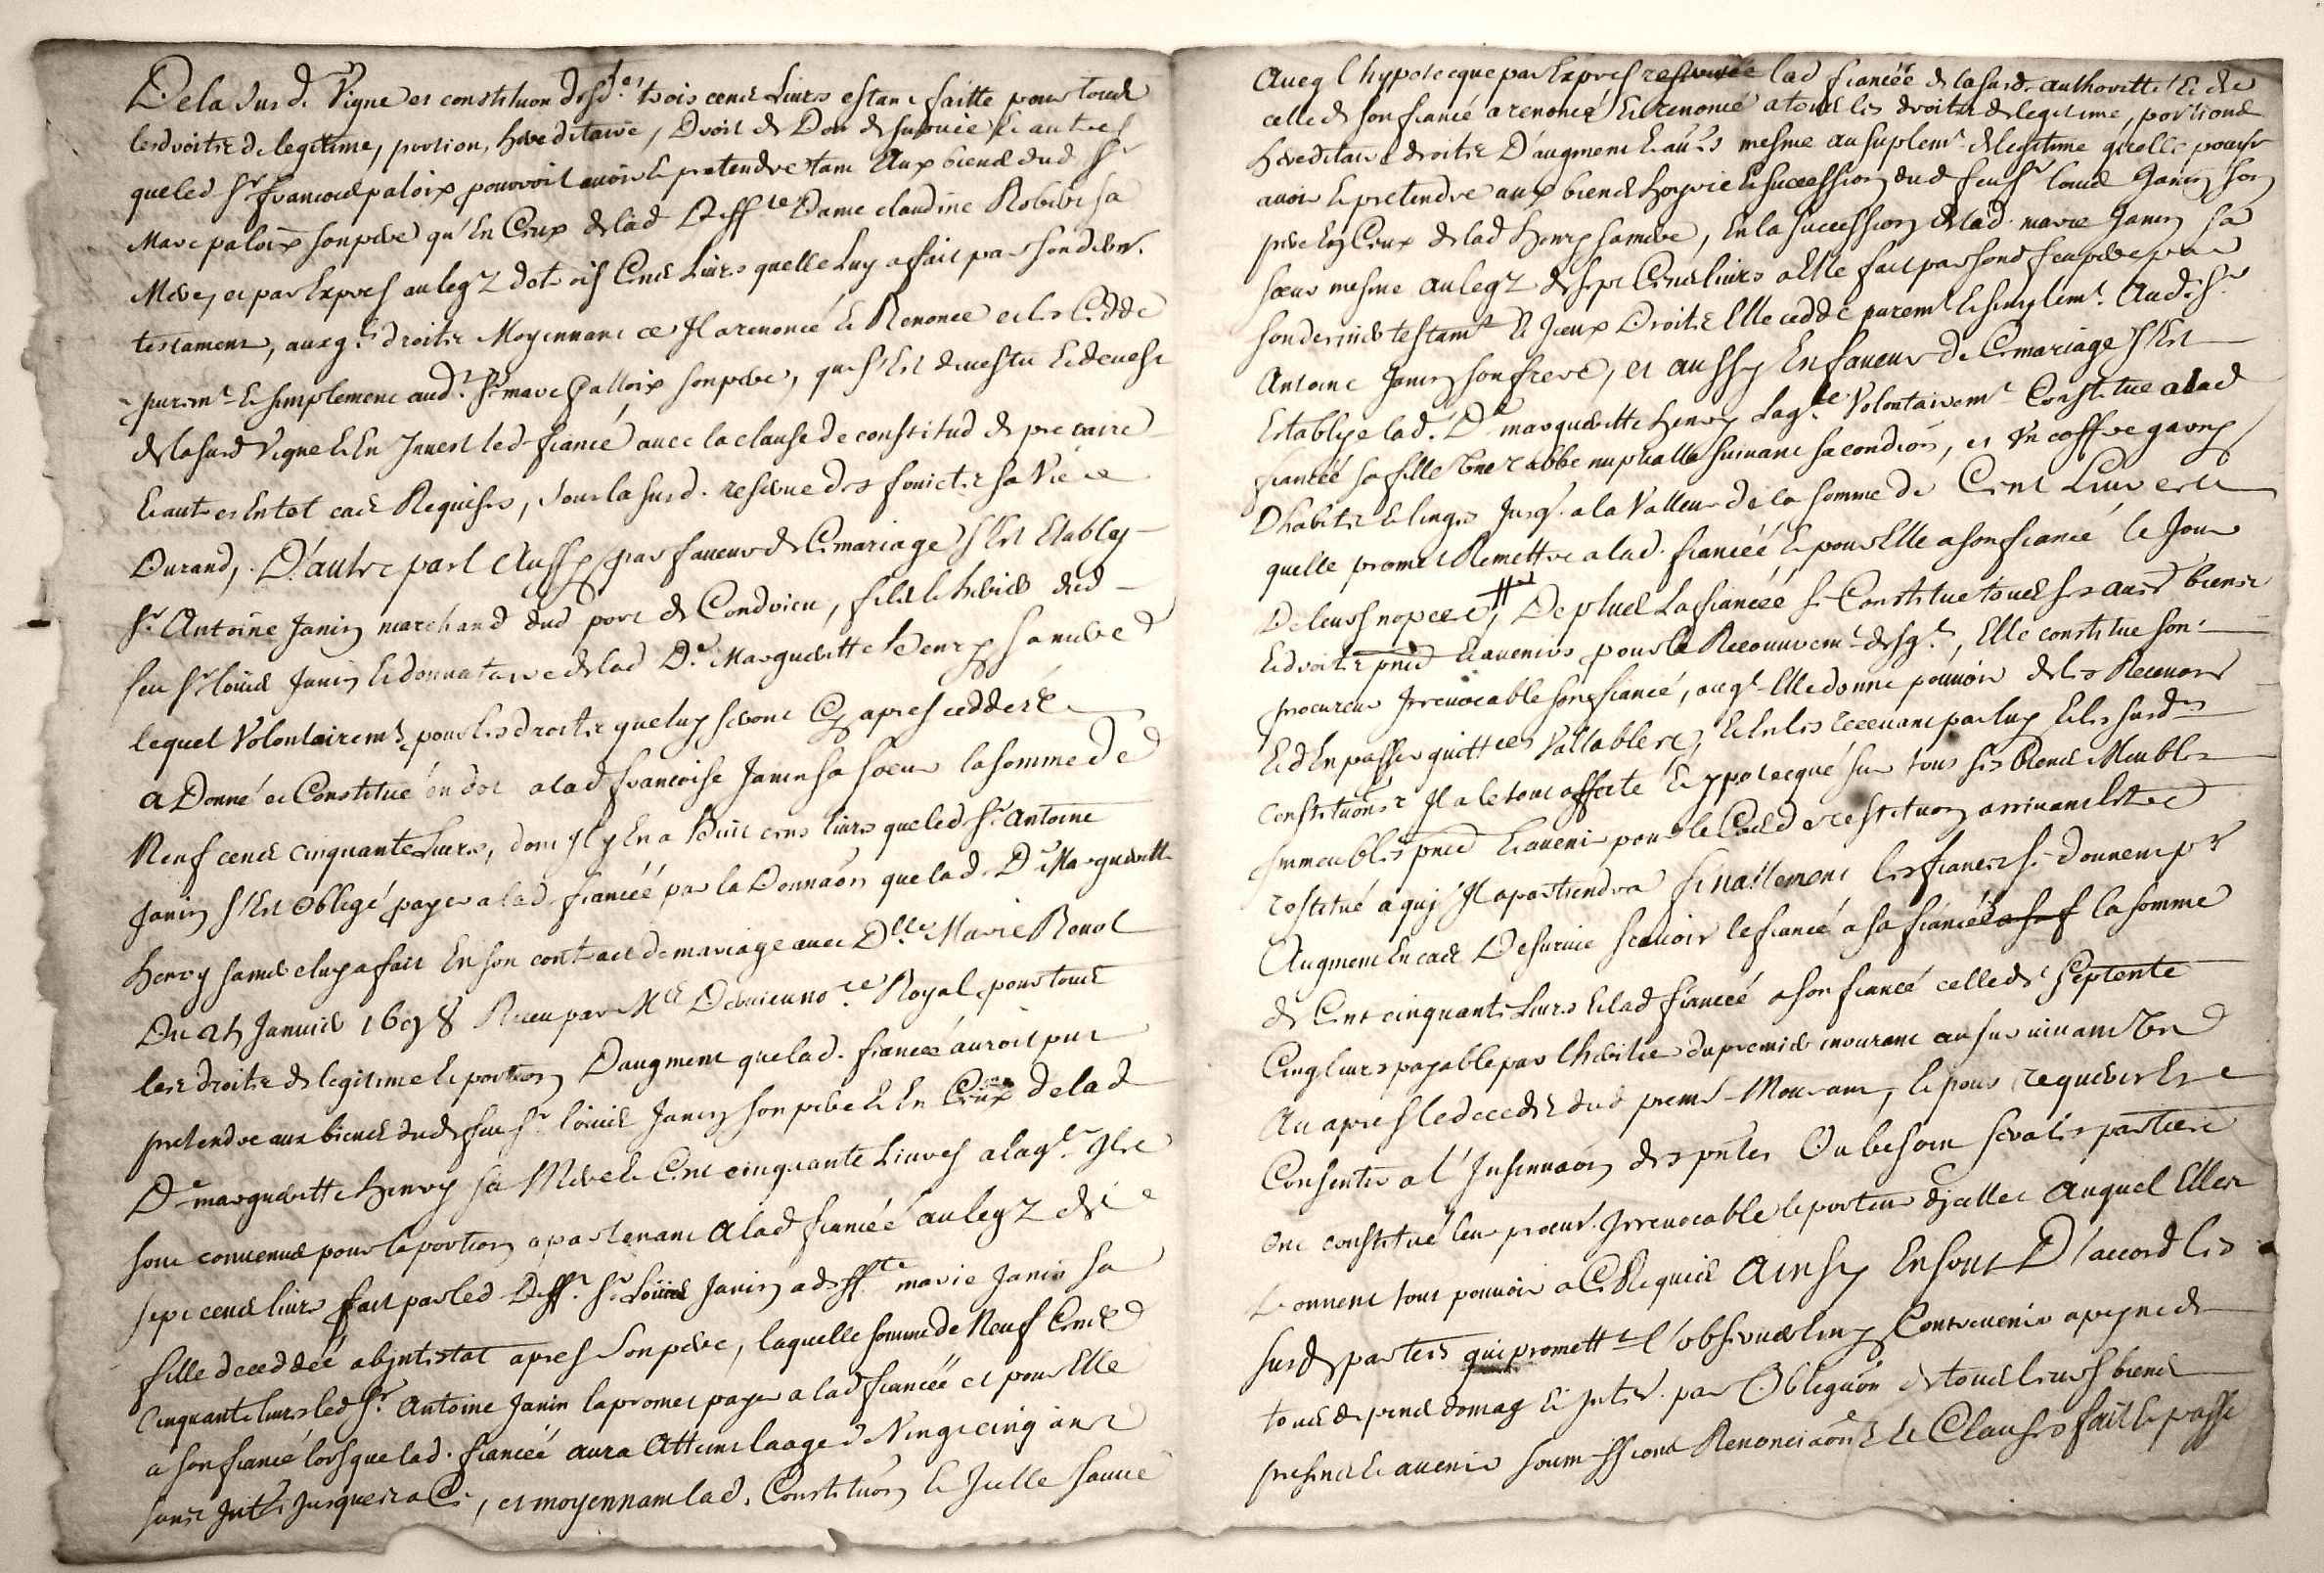 De la susd. Vigne et constituon desd.es trois cens Livres estant faitte pour tous
les droits de legitime, portion, hereditaire, Droit de Don de survie et autres
que led Sr francois paloix pourroit avoir et pretendre tant Aux biens dud Sr
Marc paloix son pere qu'En Ceux de lad Deff.te Dame claudine Robert sa
Mere, et par Expres au legz de trois Cens Livres quelle Luy a fait par son dernr.
testament, auxq.ls droits Moyennant ce Il a renoncé et Renonce et les Cedde
purem.t et simplement aud.t Sr marc Palloix son pere, qui s'Est devestu et devest
de la susd Vigne et En Invest led fiancé avec la clause de constitud de precaire
et autres En tel cas Requises, sous la susd. reserve des fruicts sa Vie
Durand, D'autre part Aussy par faveur de Ce mariage s'Est Etably
Sr. Antoine Janin marchand dud port de Condrieu, fils et heritier dud
feu Sr Loüis Janin et donnataire de lad De. Margueritte Henry sa mere
lequel Volontairemt pour les droits que luy seront Cy apres ceddés
a Donné et Constitué en dot a lad francoise Janin sa soeur la somme de
Neuf cens cinquante Livres, dont Il y En a Huit cens livres que led Sr. Antoine
Janin s'Est obligé payer a lad. fiancéé par la Donnaon que lad. De Marguerite
Henry sa mere luy a fait En son contract de mariage avec Dlle Marie Bonot
Du 25 Janvier 1698 Receu par Me Dervieu no.re Royal, pour tous
les droits de legitime et portion D'augment que lad. fiancéé auroit peut
pretendre aux biens dud feu Sr. loüis Janin son pere et En Ceux de lad
De marguerite Henry sa Mere et Cent cinquante Livres a laq.le Ils
sont convenus pour la portion apartenant a lad fiancéé au legz de
sept cens livres fait par led Deff.t Sr. Loüis Janin a deff.te marie Janin sa
fille deceddéé abjntestat apres son pere, laquelle somme de Neuf Cens
Cinquante livres led Sr. Antoine Janin la promet payer a lad fiancéé et pour Elle
a son fiancé lorsque lad. fiancéé aura Atteint laage de Vingt cinq ans
sans Intts Jusques a Ce, et moyennant lad. Constituon et Icelle sauve
Avec l'hypotecque par Expres reservée lad fiancéé de la susd. authoritte et de
celle de son fiancé a renoncé et renonce a tous les droits de legitime, portions
hereditaire droits D'augment et aues mesme au suplemt de legitime qu'elle pourrt
avoir et pretendre aux biens hoyrie et succession dud feu Sr loüis Janin son
pere En Ceux de lad Henry sa mere, En la succession de lad. marie Janin sa
soeur mesme au legz de sept Cens livres a Elle fait par sond feu pere par
son dernier testamt et Iceux Droits Elle cedde purem.t et simplem.t Aud. Sr
Antoine Janin son frere, et aussy En faveur de Ce mariage s'Est
Establye lad. De marguerite Henry laq.le Volontairemt Constitue a lad
fiancéé sa fille Une rabbe nuptialle suivant sa condion, et Vn coffre garny
D'habits et linges Jusq. a la Valleur de la somme de Cent Livres
quelle promet Remettre a lad. fiancéé et pour Elle a son fiancé le Jour
De leurs nopces, De plus La fiancéé se Constitue tous ses aues biens
et droits pnts et avenirs pour le Recouvremt desq.ls, Elle constitue son
procureur Irrevocable son fiancé, auq.l Elle donne pouvoir de les Recevoir
et d'En passer quittces Vallables, et En les recevant par luy et les susdes
constituons Il a le tout affecté et ypotecqué sur tous ses biens Meubles
Immeubles pnts et avenir pour le Cas de restituon arrivant Estre
restitué a quy Il apartiendra finallement les fiancés se donnent pr
Augment En cas De survie scavoir le fiancé a sa fiancéé la somme
de Cent cinquante Livres et lad fiancéé a son fiancé celle de Septente
Cinq livres payable par l'heritier du premier mourant au survivant Un
An apres le deceds dud premr Mourant, et pour requerir Et
Consentir a l'Insinuaon des pntes Ou besoin sera les parties
ont constitué leur procur. Irrevocable le porteur d'jcelles Auquel Elles
Donnent tout pouvoir a Ce Requis Ainsy En sont D'accord les
susd parties qui promettt l'observer et ny Contrevenir a peyne de
tous despens domag et Intts. par Obligaon de tous leurs biens
presens et avenir soumissions Renonciaons et Clauses fait et passé